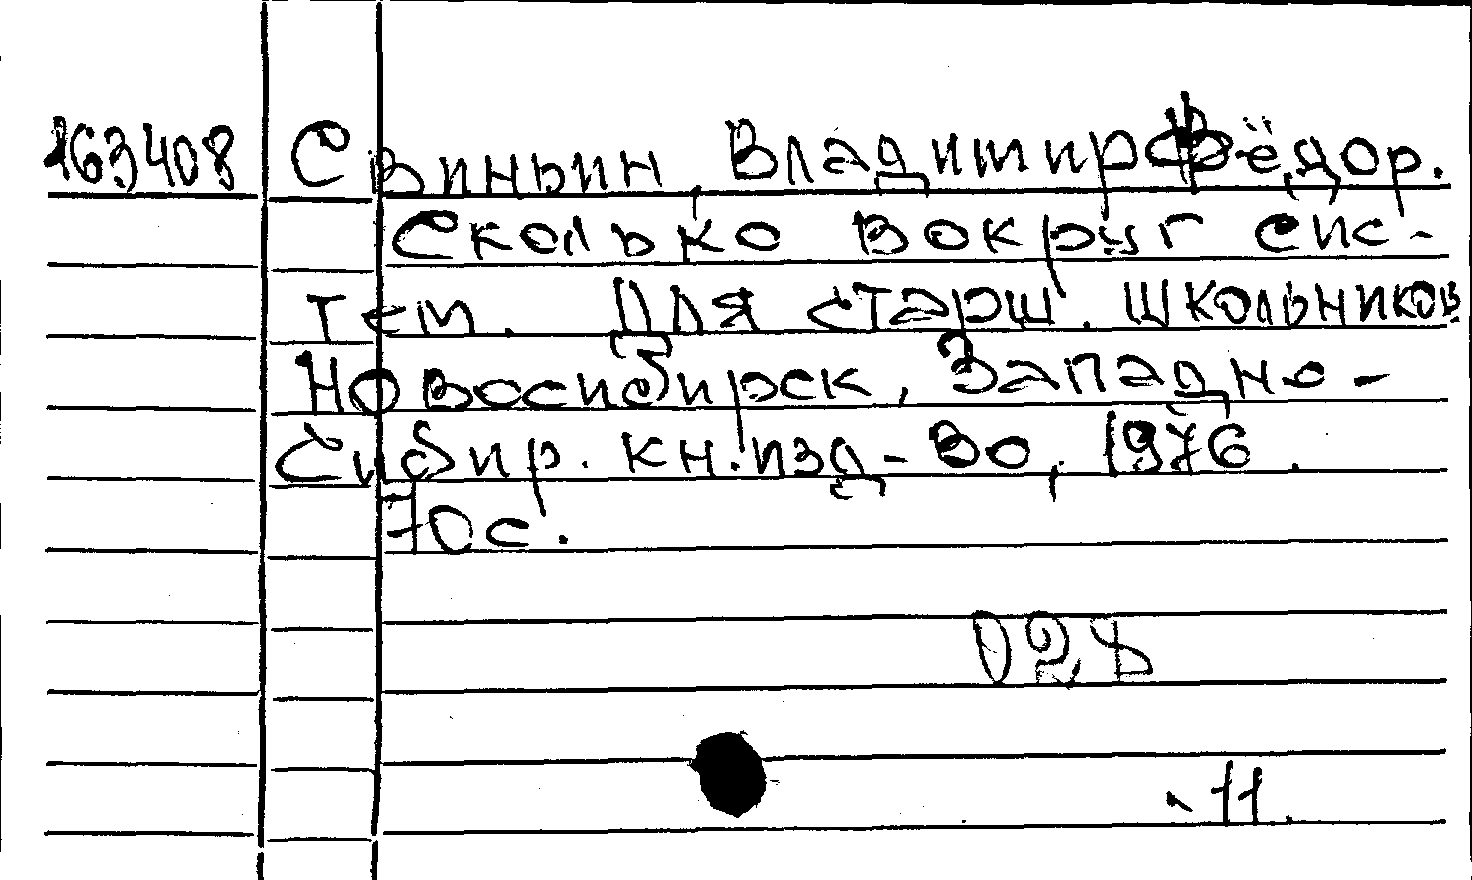 163408 Свиньин, Владимир Фёдор.
Сколько вокруг сис-
тем. Для старш. школьников
Новосибирск, Западно-
Сибир. кн. изд-во, 1976.
70с.
028
11.